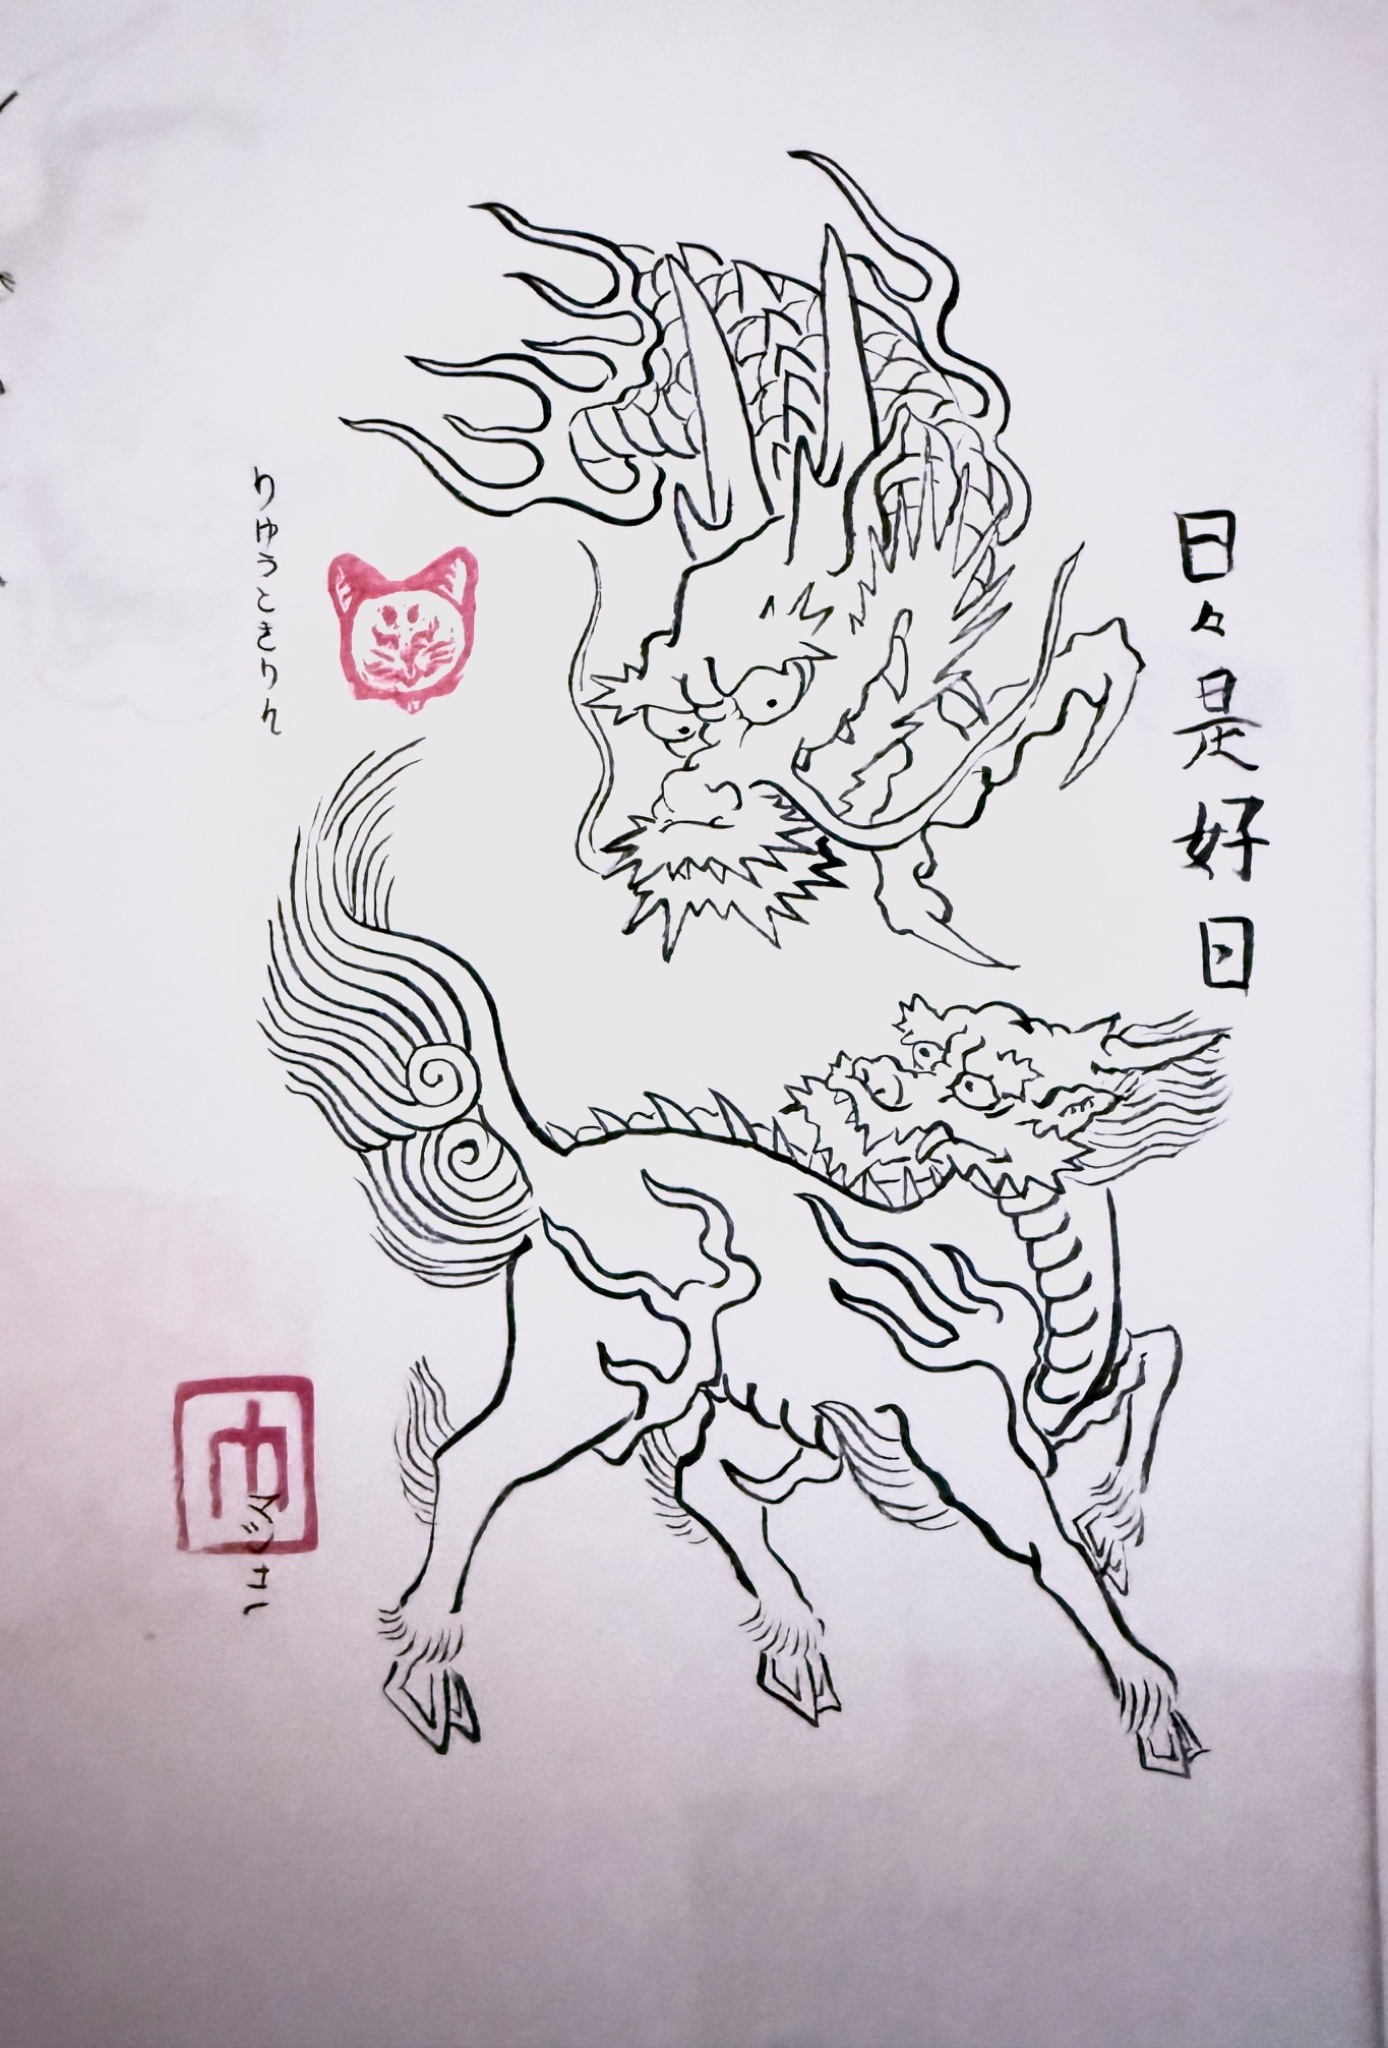 日々是好日
りゅうときりん
マシュー